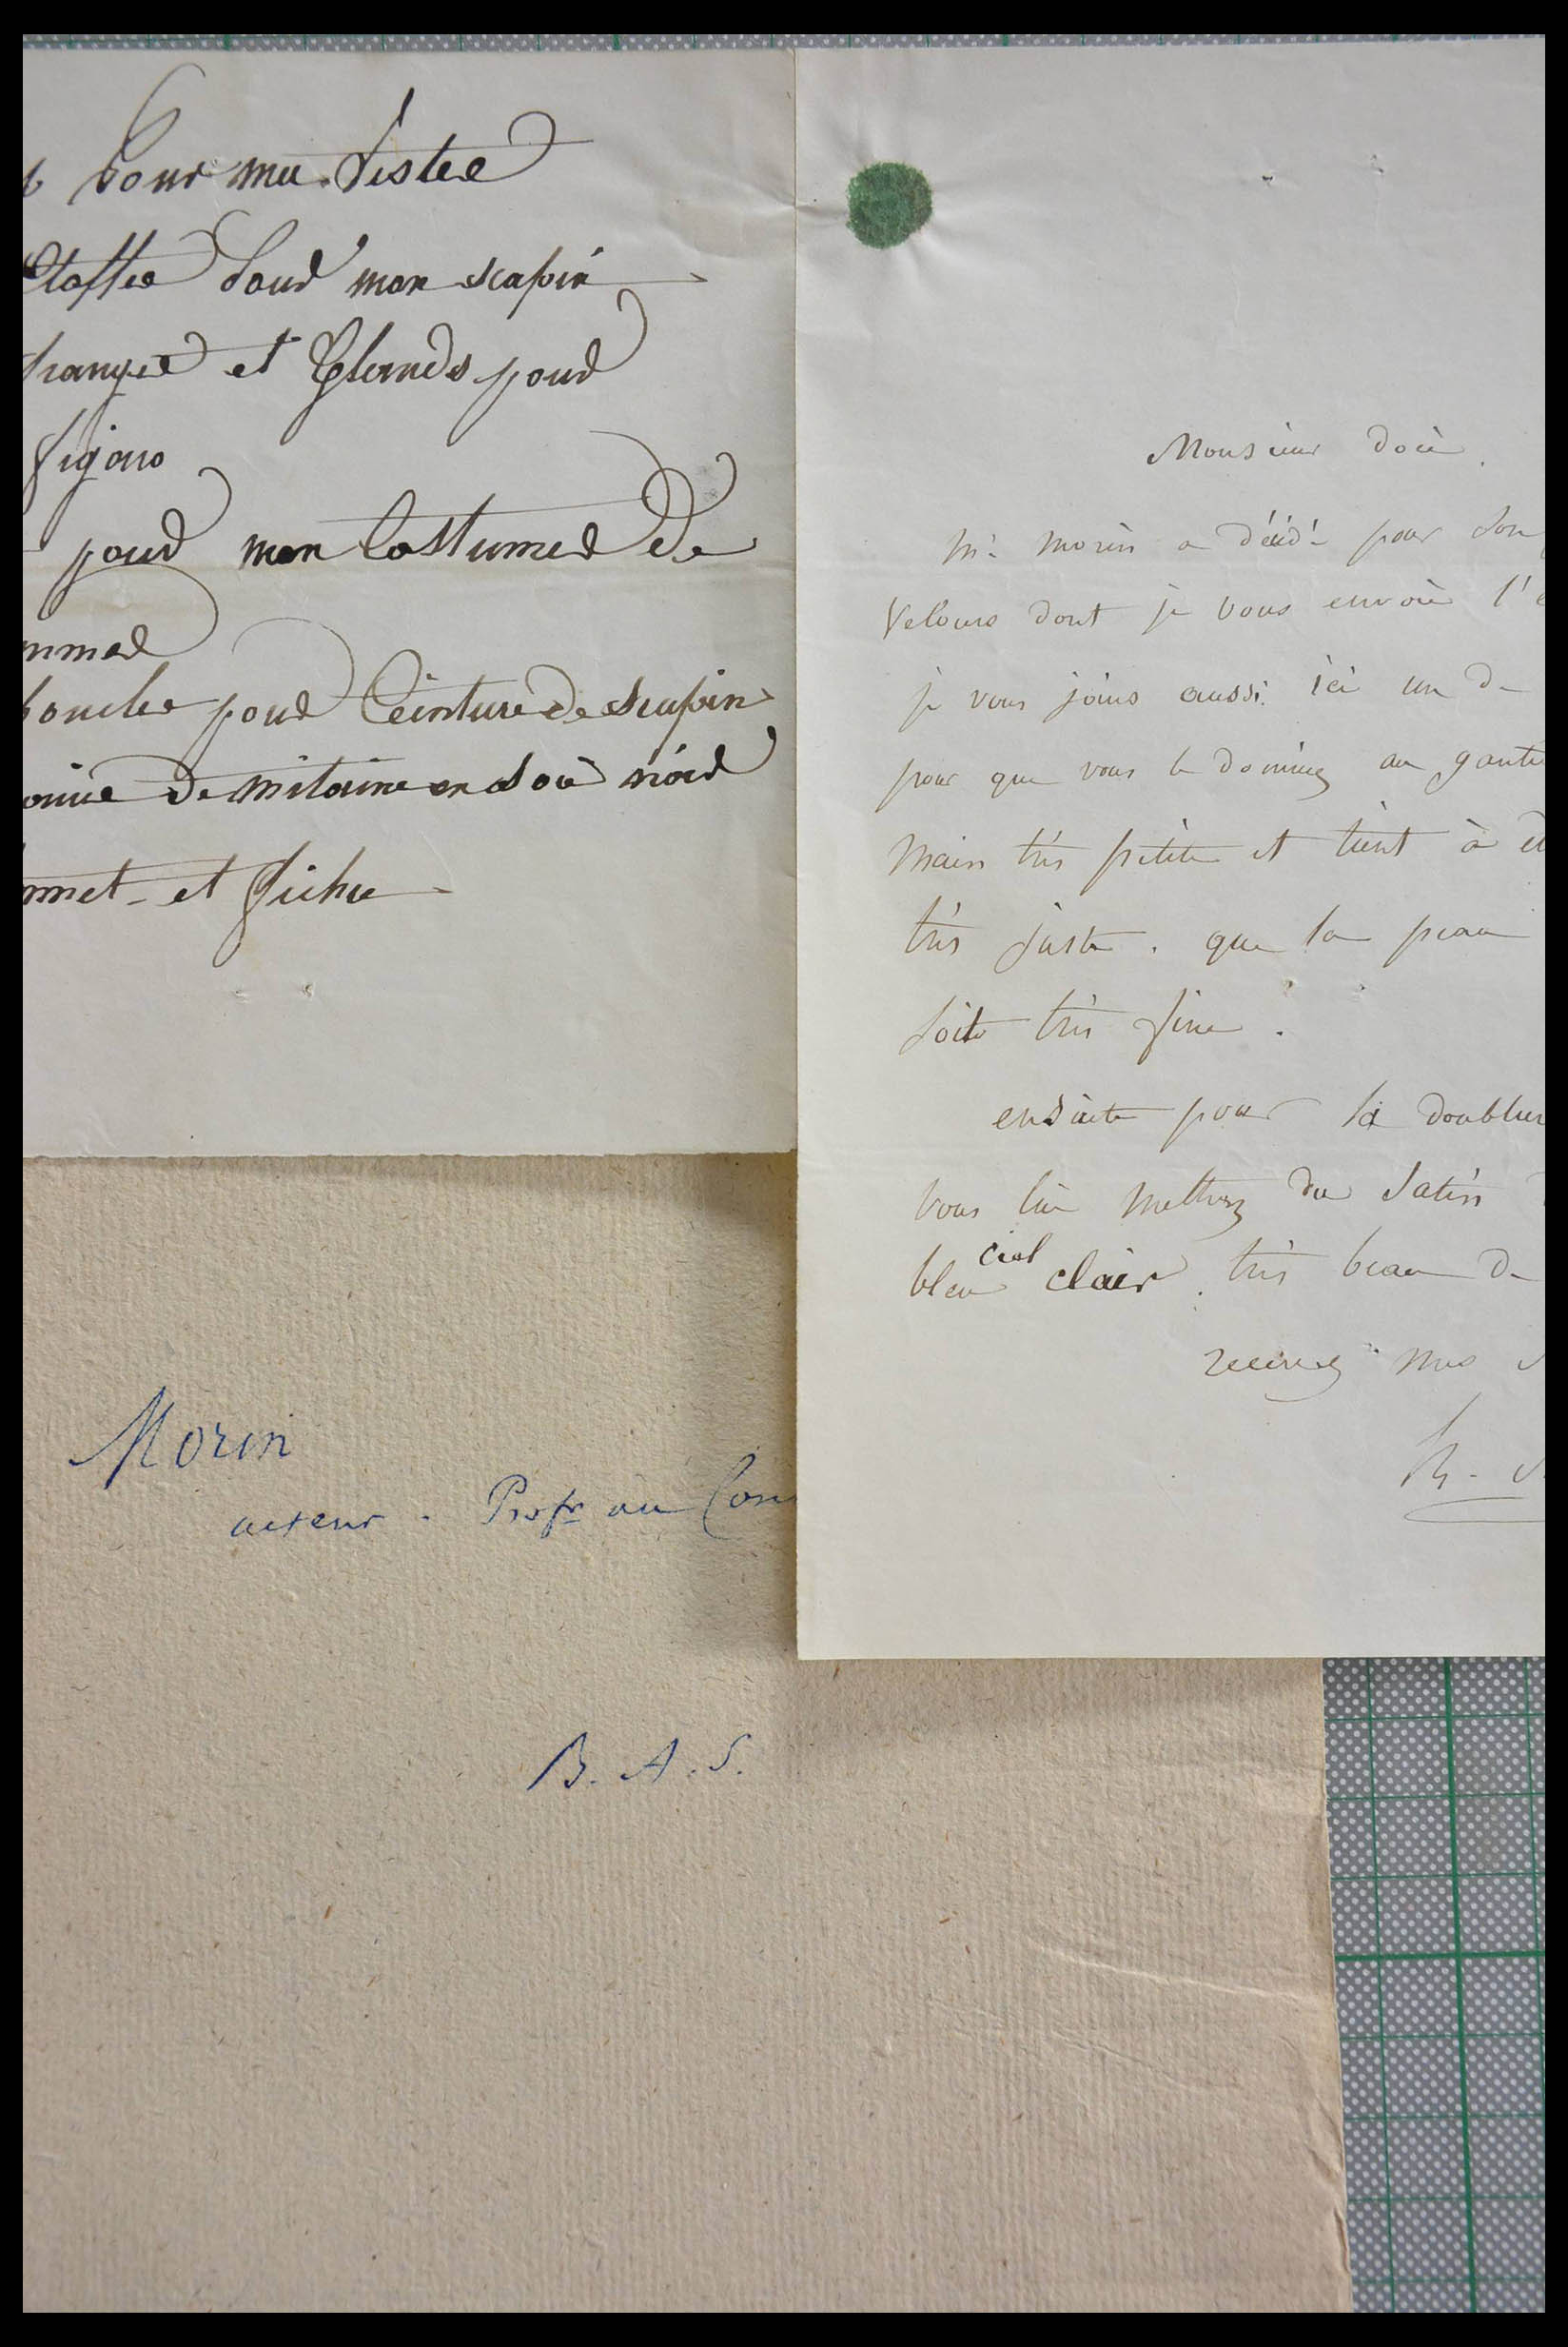 pour ma veste
Etoffee pour mon scapin
frangee et Glands pour
figaro
pour mon Costumed de
boucler pour Ceinture de scapin
de mitaine en soie noir
et fichu
Monsieur doiè.
Mr morin a décidé pour son
Velours dont je vous envoie l'
je vous joins aussi ici un de
pour que vous le donniez au
main très petite et tient à
très juste. que la peau
soite très fine.
ensuite pour la
vous lui mettrez du Satin
bleu ciel clair. très beau de
recevez mes
Morin
acteur. Profr au
B. A. S.